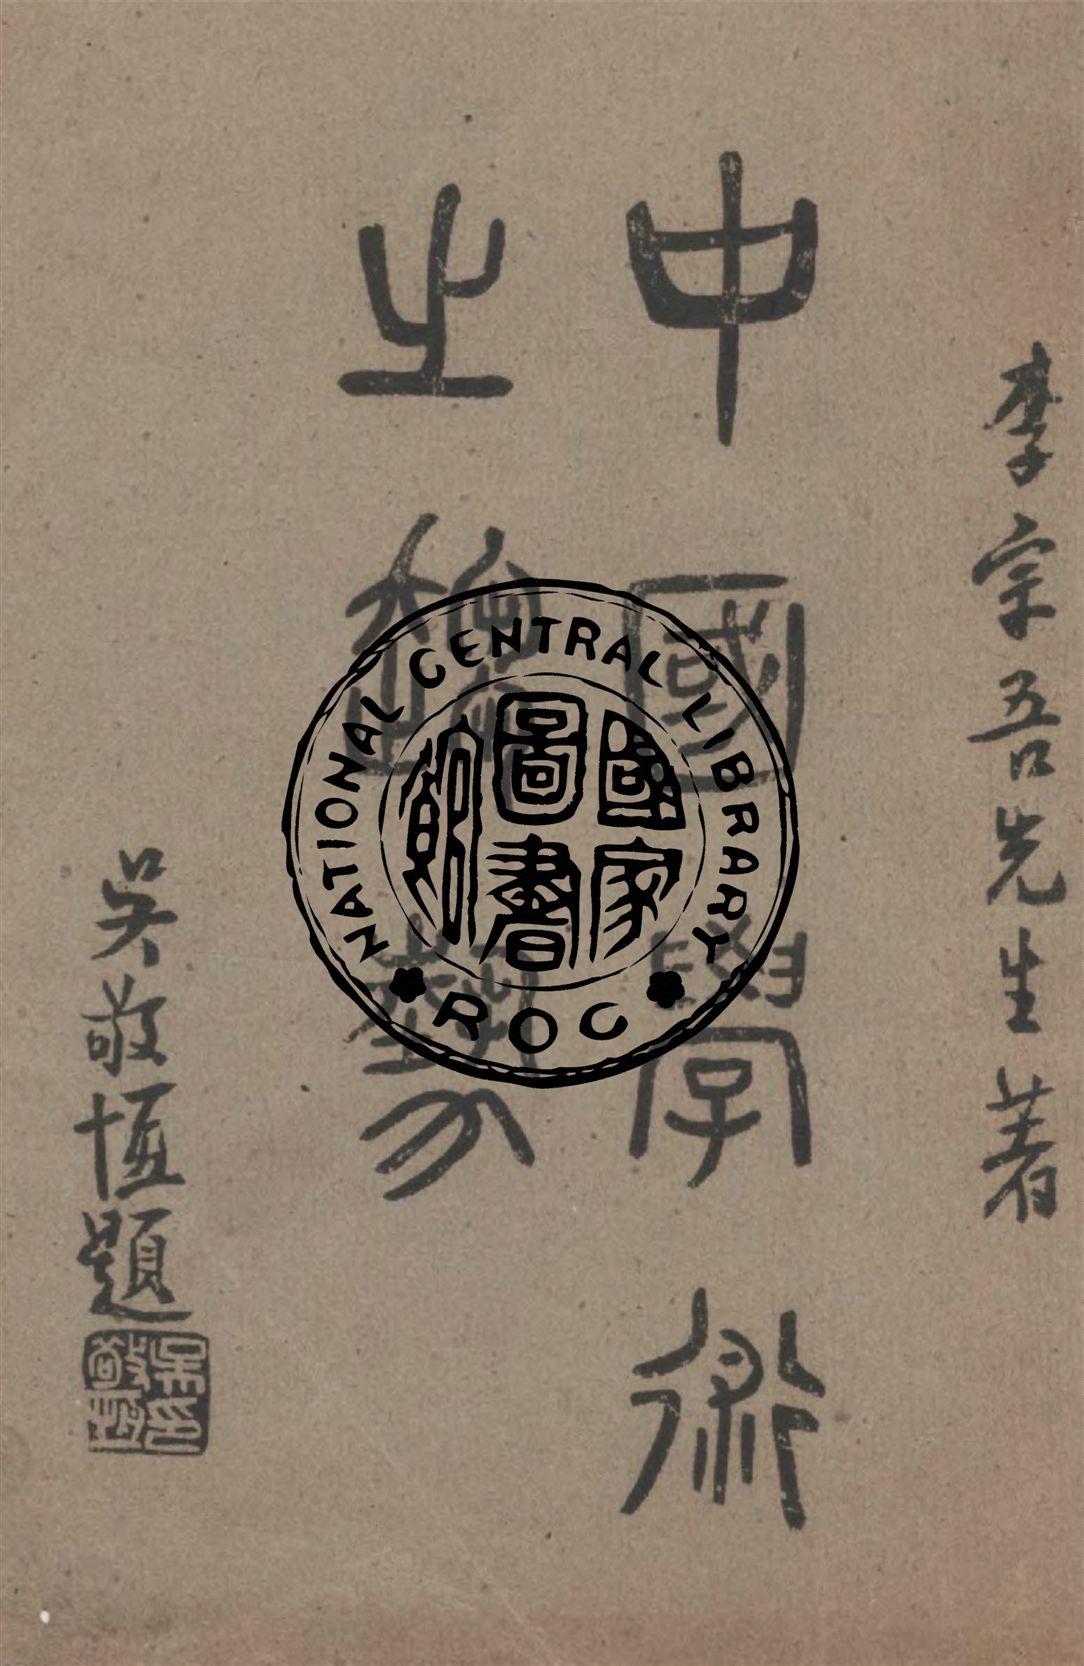 李宗吾先生著
中國學術
之趨勢
吳敬恆題
吳印敬恆
NATIONAL CENTRAL LIBRARY
國家圖書館
ROC